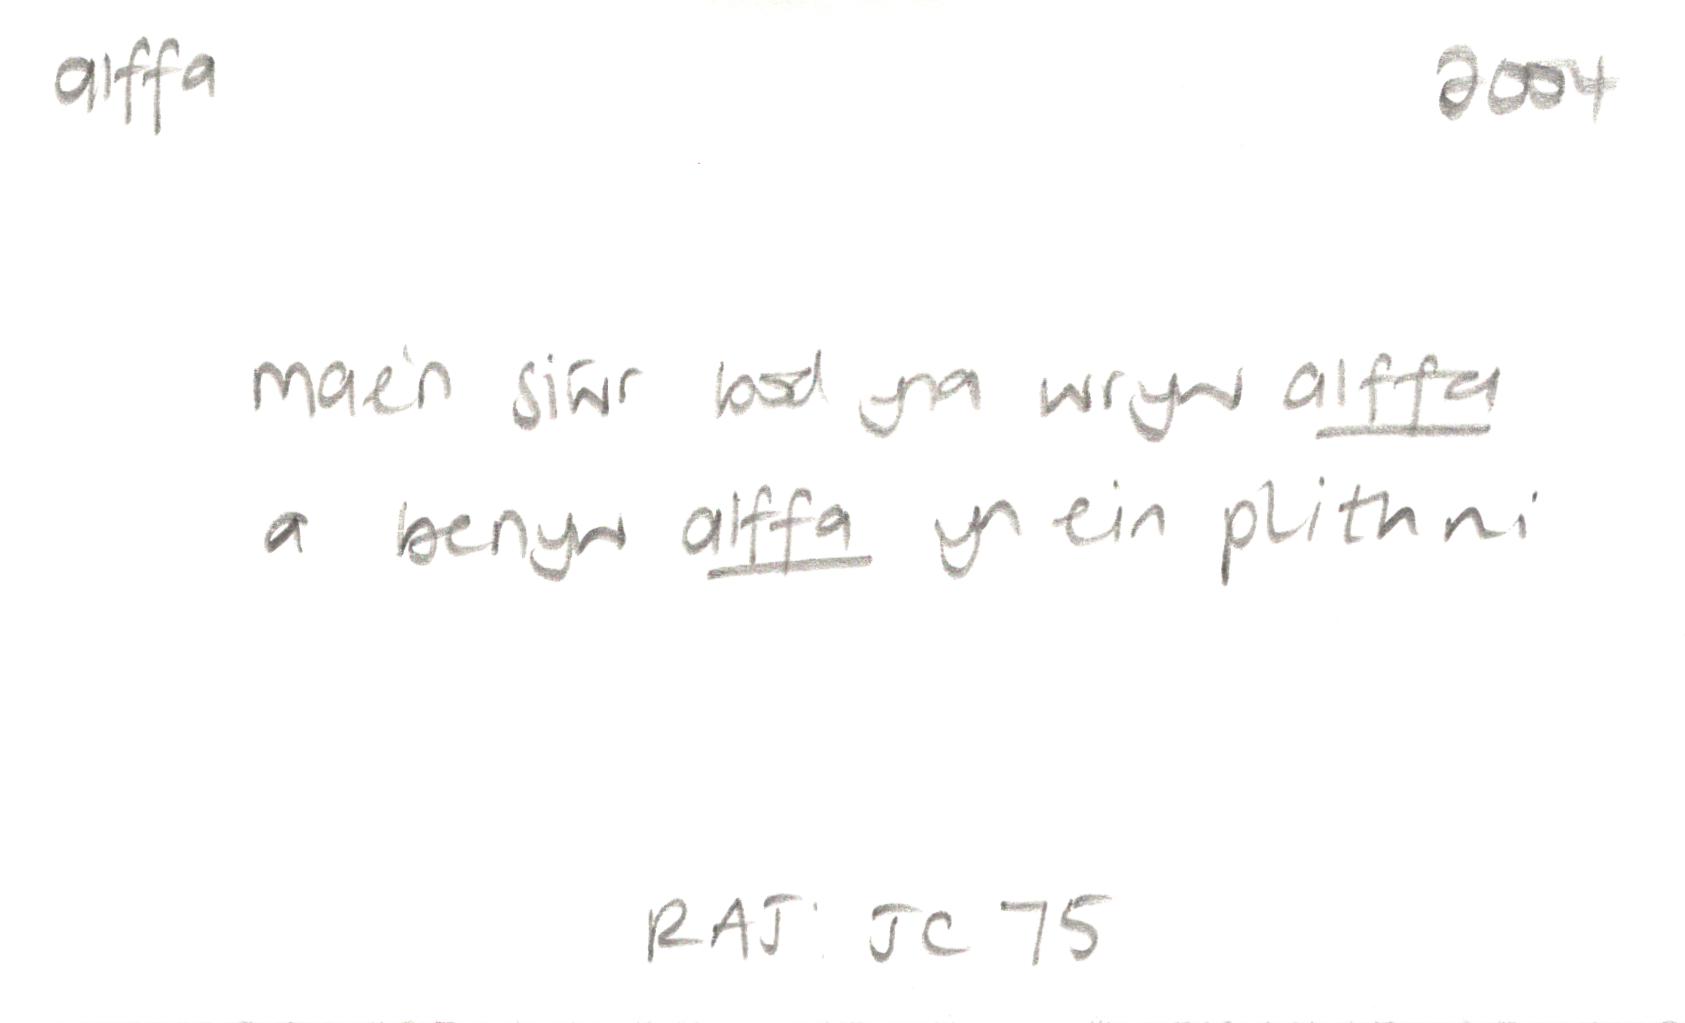 alffa 2004
mae'n siŵr bod yna wryw alffa
a benyw alffa yn ein plith ni
RAJ: JC 75